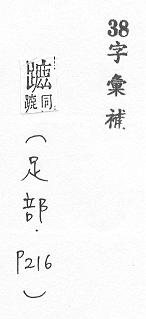 38字彙補
同
(足部. P216)